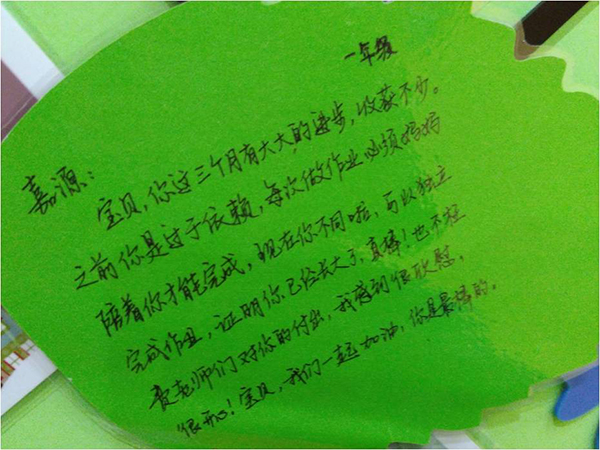 一年级
嘉源：
宝贝，你这三个月有大大的进步，收获不少。
之前你是过于依赖，每次做作业必须妈妈
陪着你才能完成，现在你不同啦，可以独立
完成作业，证明你已经长大了，真棒！也不枉
费老师们对你的付出，我感到很欣慰，
很开心！宝贝，我们一起加油，你是最棒的。